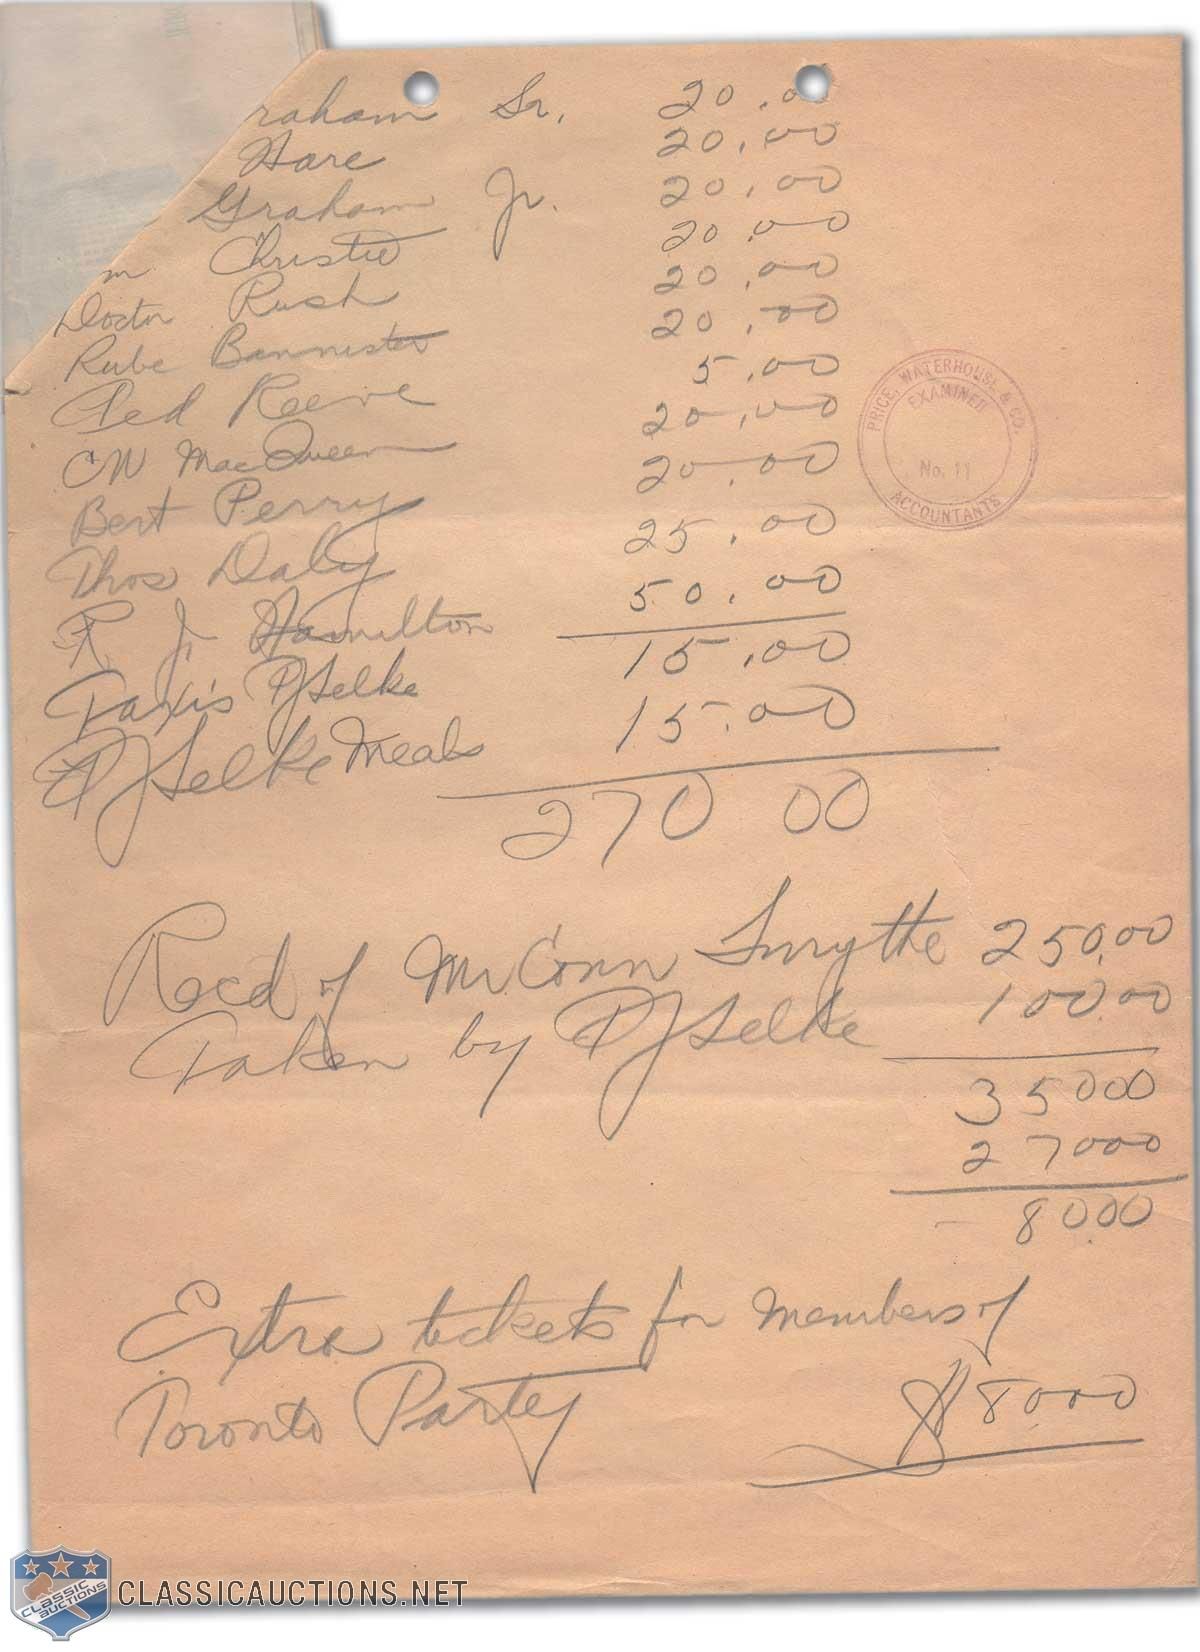 raham Sr. 20.00
Hare 20.00
Graham Jr. 20.00
m Christie 20.00
Doctor Rush 20.00
Rube Bannister 20.00
Ted Reeve 5.00
CW MacQueen 20.00
Bert Perry 20.00
Thos Daly 25.00
R. J. Hamilton 50.00
Taxis PJ Selke 15.00
PJ Selke Meals 15.00
270 00
PRICE, WATERHOUSE & CO.
EXAMINED
No. 11
ACCOUNTANTS
Recd of Mr Conn Smythe 250.00
Taken by PJ Selke 100.00
35000
27000
- 8000
Extra tickets for members of
Toronto Party $80.00
CLASSIC AUCTIONS
CLASSICAUCTIONS.NET